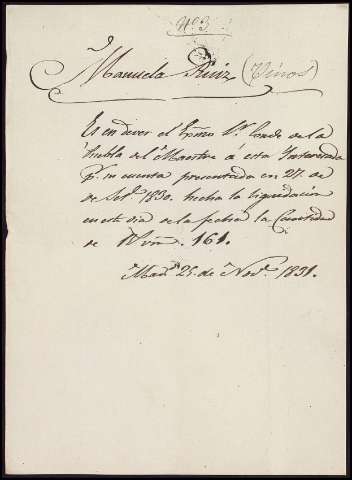 Nº 3
Dª
Manuela Ruiz (Vinos)
Es en dever el Exmo Sr. Conde de la
Puebla del Maestre á esta Interesada
pr. su cuenta presentada en 27. de
de Setе. 1830. hecha la liquidacion
en este dia de la fecha la Cantidad
de Rvn. 161.
Madd 25. de Nove. 1831.